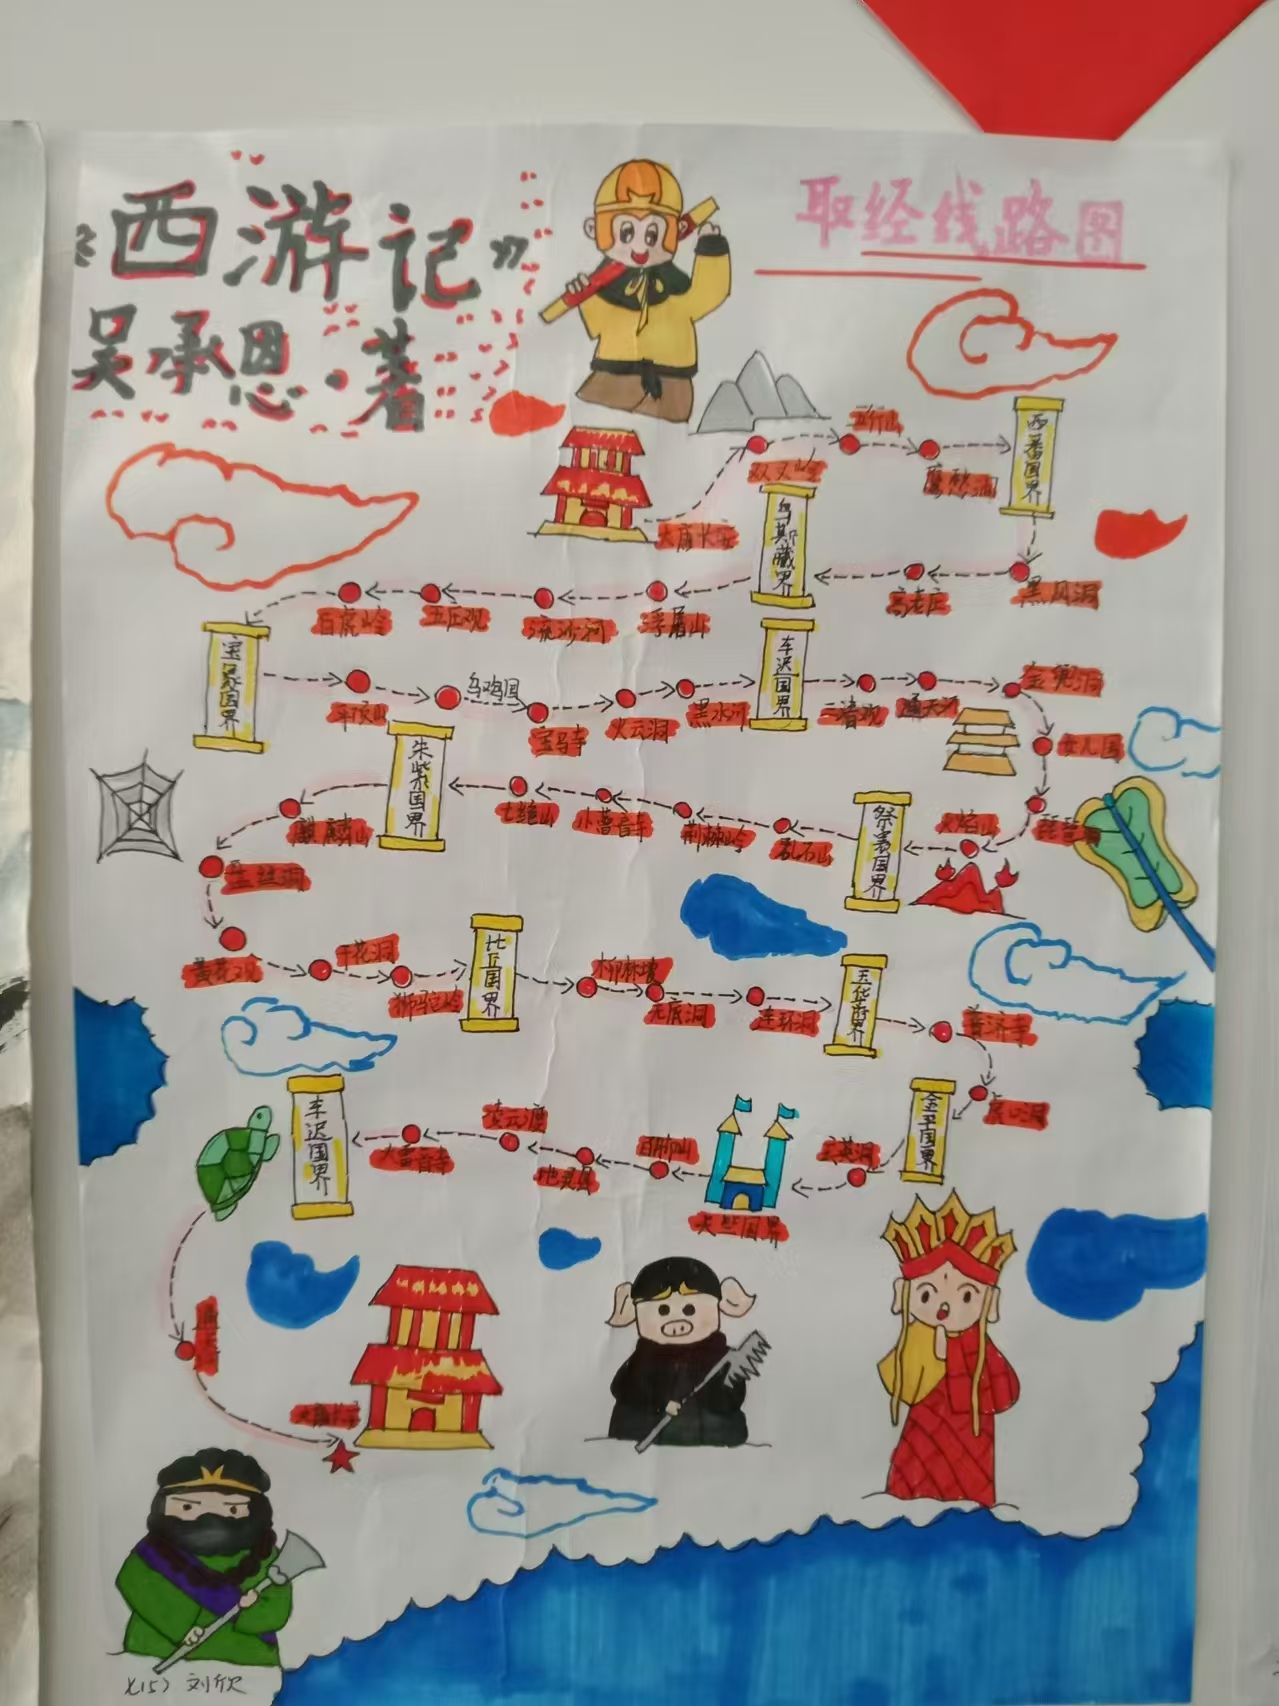 《西游记》
吴承恩·著
取经线路图
大唐长安
双叉岭
五行山
鹰愁涧
西番国界
黑风洞
高老庄
乌斯藏界
浮屠山
流沙河
五庄观
白虎岭
宝象国界
平顶山
乌鸡国
宝马寺
火云洞
黑水河
车迟国界
三清观
通天河
金兜洞
女儿国
琵琶洞
火焰山
祭赛国界
乱石山
荆棘岭
小雷音寺
七绝山
朱紫国界
麒麟山
盘丝洞
黄花观
千花洞
狮驼岭
比丘国界
柳林坡
无底洞
连环洞
玉华府界
普济寺
虎口洞
金平国界
玄英洞
天竺国界
百脚山
地灵县
凌云渡
大雷音寺
车迟国界
通天河
大唐长安
七(15) 刘欣